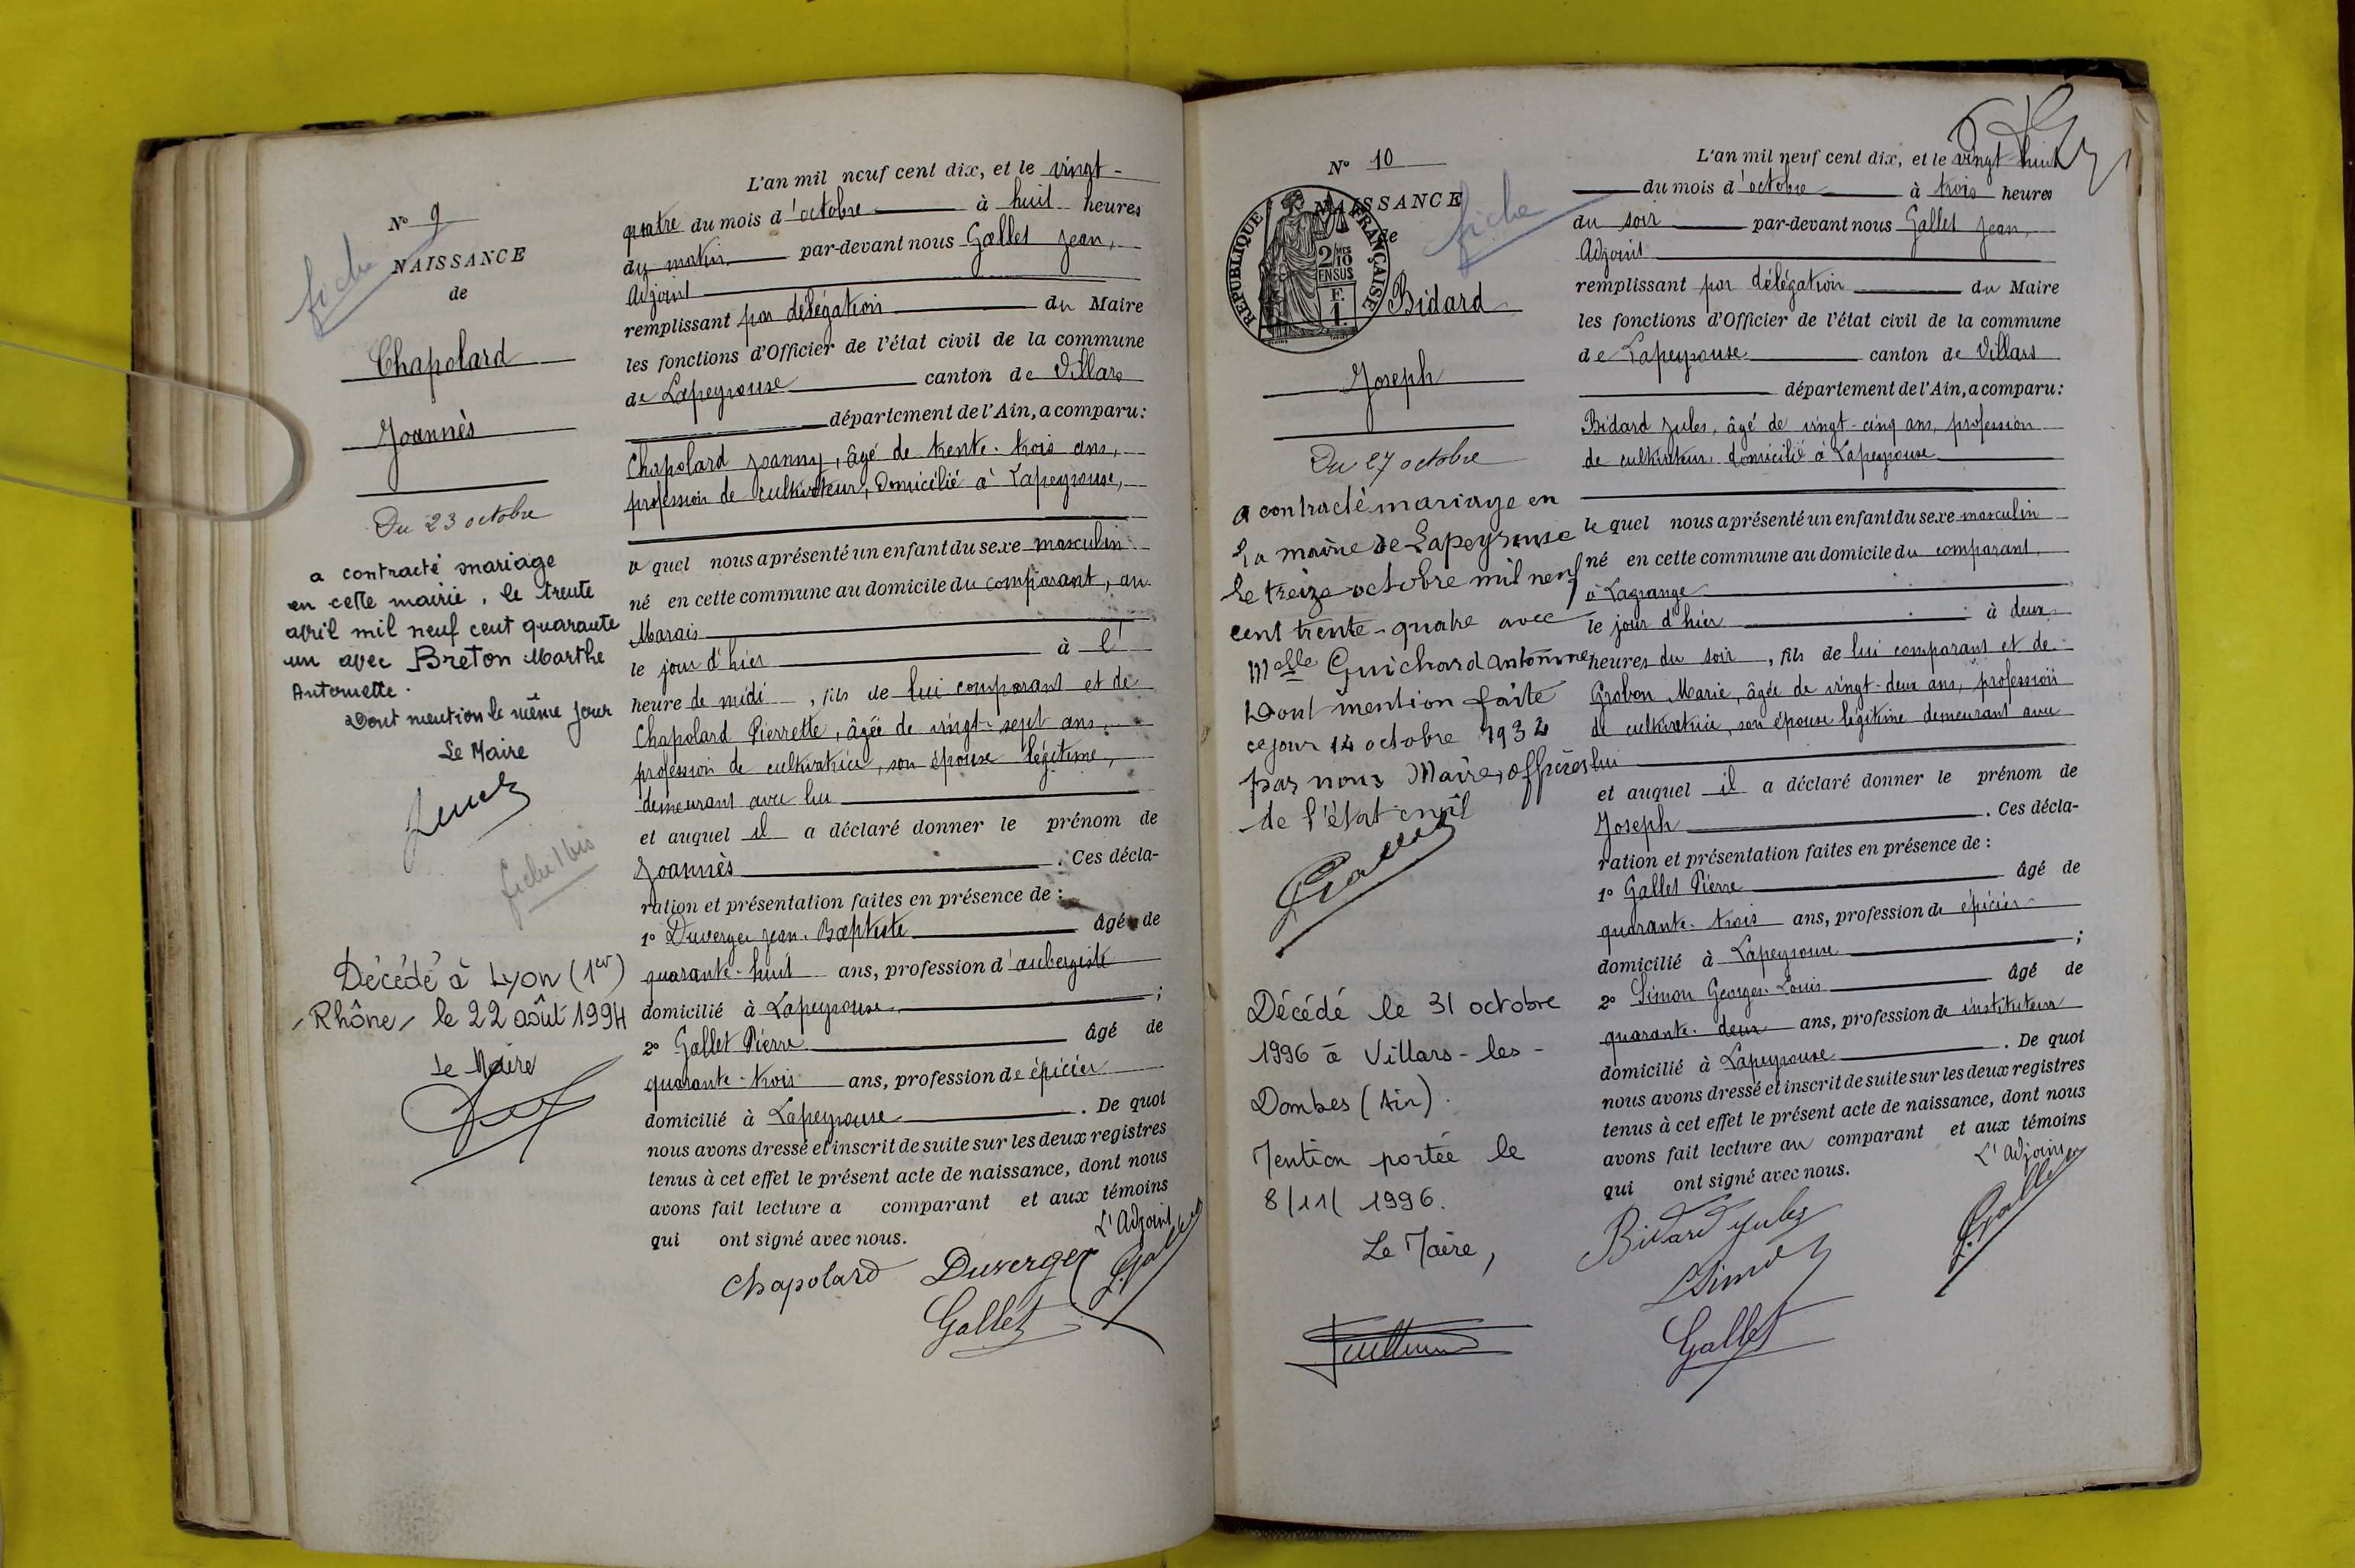 N° 9
fiche
NAISSANCE
de
Chapolard
Joannès
Du 23 octobre
a contracté mariage
en cette mairie, le trente
avril mil neuf cent quarante
un avec Breton Marthe
Antoinette.
Dont mention le même jour
Le Maire
fiche 1 bis
Décédé à Lyon (1er)
-Rhône- le 22 août 1994
Le Maire
L'an mil neuf cent dix, et le vingt-
quatre du mois d'octobre à huit heures
du matin par-devant nous Gallet Jean,
Adjoint
remplissant par délégation du Maire
les fonctions d'Officier de l'état civil de la commune
de Lapeyrouse canton de Villars
département de l'Ain, a comparu:
Chapolard Joanny, âgé de trente-trois ans,
profession de cultivateur, domicilié à Lapeyrouse,
quel nous a présenté un enfant du sexe masculin
né en cette commune au domicile du comparant, au
Marais
le jour d'hier à l'
heure de midi, fils de lui comparant et de
Chapolard Pierrette, âgée de vingt-sept ans,
profession de cultivatrice, son épouse légitime,
demeurant avec lui
et auquel il a déclaré donner le prénom de
Joannès. Ces décla-
ration et présentation faites en présence de :
1° Duverger Jean-Baptiste âgé de
quarante-huit ans, profession d'aubergiste
domicilié à Lapeyrouse ;
2° Gallet Pierre âgé de
quarante-trois ans, profession de épicier
domicilié à Lapeyrouse. De quoi
nous avons dressé et inscrit de suite sur les deux registres
tenus à cet effet le présent acte de naissance, dont nous
avons fait lecture a comparant et aux témoins
qui ont signé avec nous.
L'Adjoint
Chapolard Duverger J. Gallet
Gallet
N° 10
NAISSANCE
de
fiche
RÉPUBLIQUE FRANÇAISE
2/10
EN SUS
F.
1.
Bidard
Joseph
Du 27 octobre
a contracté mariage en
la mairie de Lapeyrouse
le treize octobre mil neuf
cent trente-quatre avec
Melle Guichard Antoinine
Dont mention faite
ce jour 14 octobre 1934
par nous Maire, officier
de l'état civil
Décédé le 31 octobre
1996 à Villars-les-
Dombes (Ain).
Mention portée le
8/11/1996.
Le Maire,
L'an mil neuf cent dix, et le vingt huit
du mois d'octobre à trois heures
du soir par-devant nous Gallet Jean,
Adjoint
remplissant par délégation du Maire
les fonctions d'Officier de l'état civil de la commune
de Lapeyrouse canton de Villars
département de l'Ain, a comparu:
Bidard Jules, âgé de vingt-cinq ans, profession
de cultivateur, domicilié à Lapeyrouse
le quel nous a présenté un enfant du sexe masculin
né en cette commune au domicile du comparant,
à Lagrange
le jour d'hier à deux
heures du soir, fils de lui comparant et de
Grobon Marie, âgée de vingt-deux ans, profession
de cultivatrice, son épouse légitime demeurant avec
lui
et auquel il a déclaré donner le prénom de
Joseph. Ces décla-
ration et présentation faites en présence de :
1° Gallet Pierre âgé de
quarante-trois ans, profession de épicier
domicilié à Lapeyrouse ;
2° Simon Georges-Louis âgé de
quarante-deux ans, profession de instituteur
domicilié à Lapeyrouse. De quoi
nous avons dressé et inscrit de suite sur les deux registres
tenus à cet effet le présent acte de naissance, dont nous
avons fait lecture au comparant et aux témoins
qui ont signé avec nous.
L'Adjoint
Bidard Jules J. Gallet
Simon
Gallet